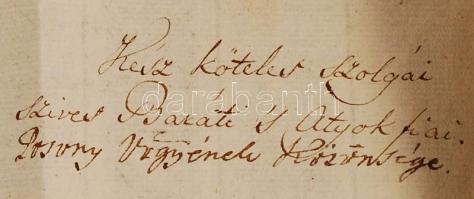 Kész köteles szolgái
szives Baráti 's Attyok fiai.
Posony Vgyének Közönsége.
darabanth